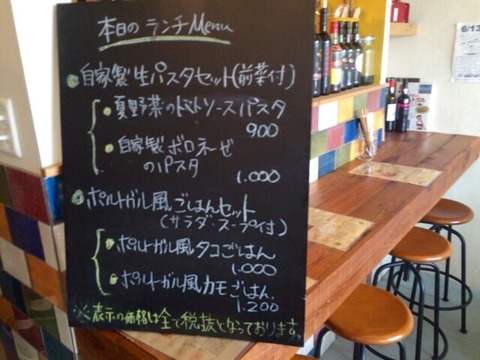 本日のランチMenu
自家製生パスタセット(前菜付)
夏野菜のトマトソースパスタ
900
自家製ボロネーゼ
のパスタ
1.000
ポルトガル風ごはんセット
(サラダ・スープ付)
ポルトガル風タコごはん
1.000
ポルトガル風カモごはん
1.200
※表示の価格は全て税抜となっております。
6/13